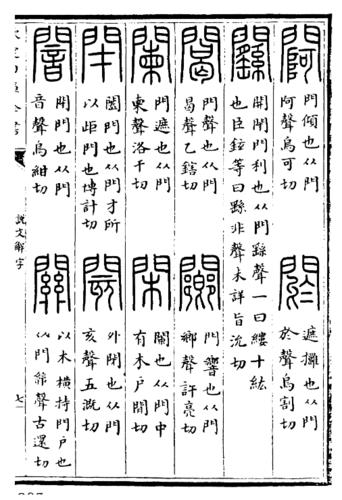 閜 門傾也从門
阿聲烏可切
閼 遮攤也从門
於聲烏割切
開閉門利也从門繇聲一曰縷十紘
也臣鉉等曰繇非聲未詳旨沇切
門聲也从門
曷聲乙鎋切
闀 門響也从門
鄉聲許亮切
闌 門遮也从門
柬聲洛干切
閑 闌也从門中
有木戶閒切
閉 闔門也从門才所
以歫門也博計切
閡 外閉也从門
亥聲五溉切
闇 閉門也从門
音聲烏紺切
關 以木橫持門戶也
从門𢇇聲古還切
說文解字